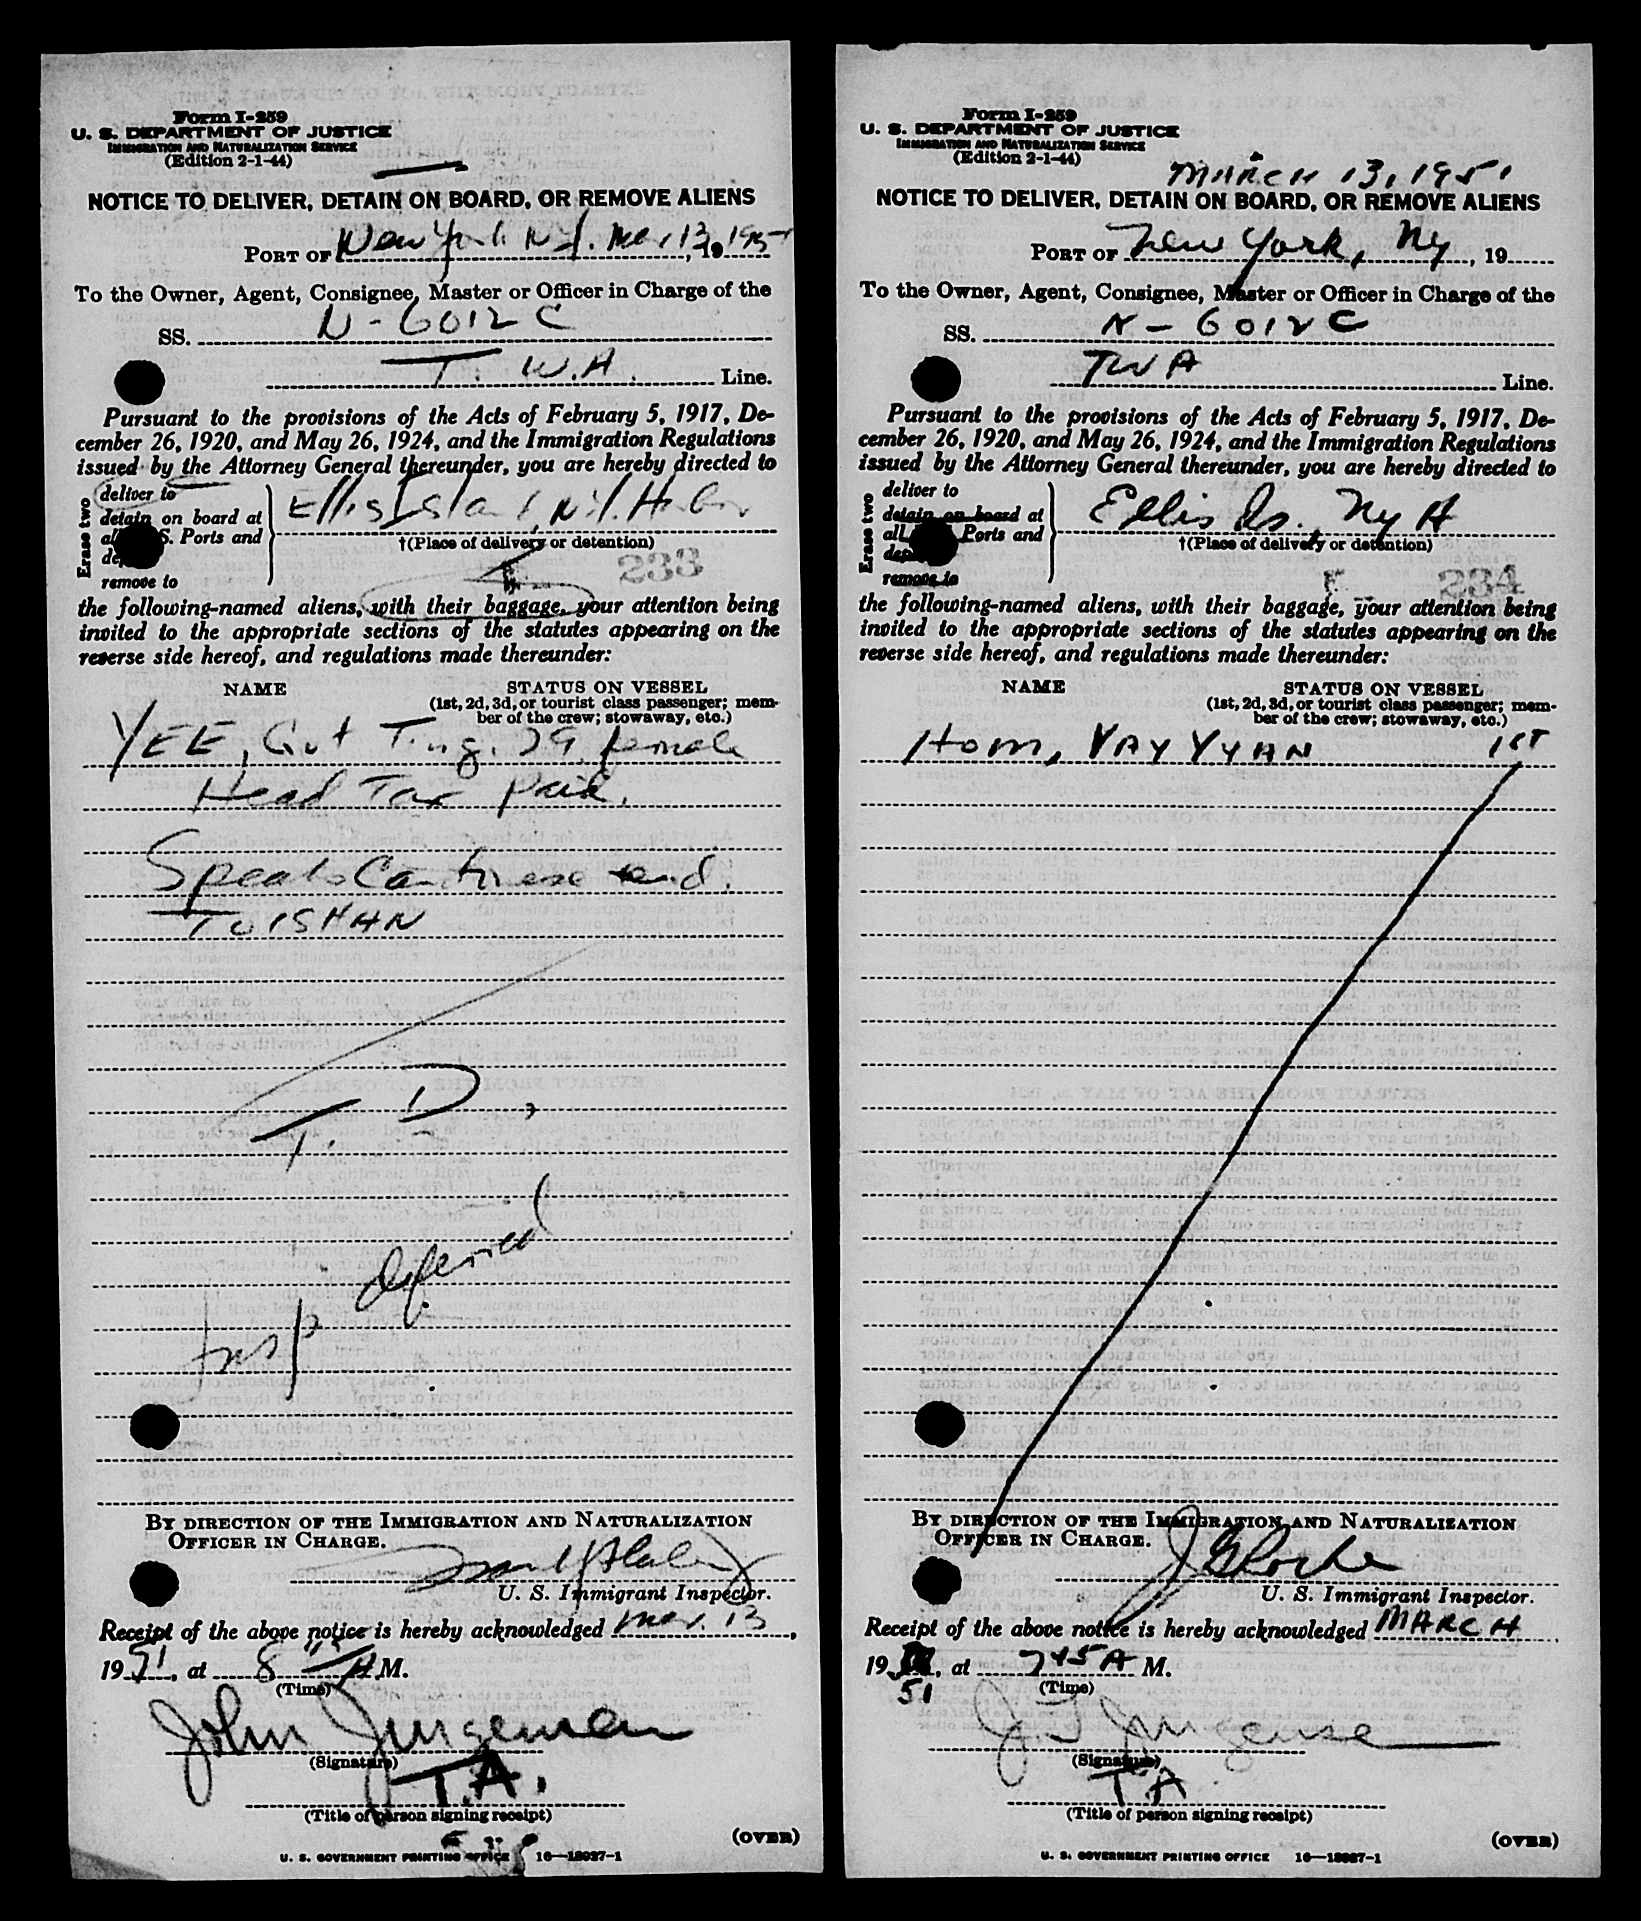 Form I-259
U. S. DEPARTMENT OF JUSTICE
IMMIGRATION AND NATURALIZATION SERVICE
(Edition 2-1-44)
NOTICE TO DELIVER, DETAIN ON BOARD, OR REMOVE ALIENS
PORT OF New York N.Y. Mar 13, 1951
To the Owner, Agent, Consignee, Master or Officer in Charge of the
SS. N-6012C
T. W.A. Line.
Pursuant to the provisions of the Acts of February 5, 1917, De-
cember 26, 1920, and May 26, 1924, and the Immigration Regulations
issued by the Attorney General thereunder, you are hereby directed to
Erase two
deliver to
detain on board at
S. Ports and
remove to
Ellis Island, N.Y. Harbor
†(Place of delivery or detention)
233
the following-named aliens, with their baggage, your attention being
invited to the appropriate sections of the statutes appearing on the
reverse side hereof, and regulations made thereunder:
NAME STATUS ON VESSEL
(1st, 2d, 3d, or tourist class passenger; mem-
ber of the crew; stowaway, etc.)
YEE, Gut Ting. 29 female
Head Tax Paid.
Speaks Cantonese and
TOISHAN
T. D.
Insp deferred
BY DIRECTION OF THE IMMIGRATION AND NATURALIZATION
OFFICER IN CHARGE.
U. S. Immigrant Inspector.
Receipt of the above notice is hereby acknowledged Mar. 13,
1951, at 8 A M.
(Time)
John Jurgensen
(Signature)
T.A.
(Title of person signing receipt)
(OVER)
U. S. GOVERNMENT PRINTING OFFICE 16—18027-1
Form I-259
U. S. DEPARTMENT OF JUSTICE
IMMIGRATION AND NATURALIZATION SERVICE
(Edition 2-1-44)
MARCH 13, 1951
NOTICE TO DELIVER, DETAIN ON BOARD, OR REMOVE ALIENS
PORT OF New York, NY, 19
To the Owner, Agent, Consignee, Master or Officer in Charge of the
SS. N-6012C
TWA Line.
Pursuant to the provisions of the Acts of February 5, 1917, De-
cember 26, 1920, and May 26, 1924, and the Immigration Regulations
issued by the Attorney General thereunder, you are hereby directed to
Erase two
deliver to
detain on board at
all Ports and
remove to
Ellis Is., NYH
†(Place of delivery or detention)
234
the following-named aliens, with their baggage, your attention being
invited to the appropriate sections of the statutes appearing on the
reverse side hereof, and regulations made thereunder:
NAME STATUS ON VESSEL
(1st, 2d, 3d, or tourist class passenger; mem-
ber of the crew; stowaway, etc.)
Hom, YAY YYAN 1ST
BY DIRECTION OF THE IMMIGRATION AND NATURALIZATION
OFFICER IN CHARGE.
U. S. Immigrant Inspector.
Receipt of the above notice is hereby acknowledged MARCH,
19 51, at 745A M.
(Time)
Jurgensen
(Signature)
TA
(Title of person signing receipt)
(OVER)
U. S. GOVERNMENT PRINTING OFFICE 16—18027-1